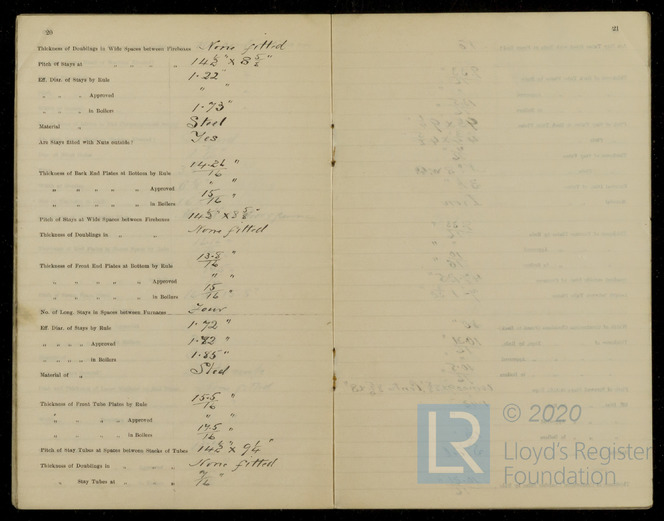 20
Thickness of Doublings in Wide Spaces between Fireboxes None fitted
Pitch of Stays at " " " " 14½" × 8 "
Eff. Diar. of Stays by Rule 1.22"
" " " Approved " "
" " " in Boilers 1.73"
Material " Steel
Are Stays fitted with Nuts outside? Yes
Thickness of Back End Plates at Bottom by Rule 14.26/16 "
" " " " " Approved " "
" " " " " in Boilers 15/16 "
Pitch of Stays at Wide Spaces between Fireboxes
Thickness of Doublings in " " None fitted
Thickness of Front End Plates at Bottom by Rule 13.5/16 "
" " " " " Approved " "
" " " " " in Boilers 15/16 "
No. of Long. Stays in Spaces between Furnaces Four
Eff. Diar. of Stays by Rule 1.72 "
" " " " Approved 1.82 "
" " " " in Boilers 1.85 "
Material of " Steel
Thickness of Front Tube Plates by Rule 15.5/16 "
" " " " Approved " "
" " " " in Boilers
Pitch of Stay Tubes at Spaces between Stacks of Tubes 14½" × 9¼"
Thickness of Doublings in " " None fitted
" Stay Tubes at " "
21
© 2020
LR
Lloyd's Register
Foundation